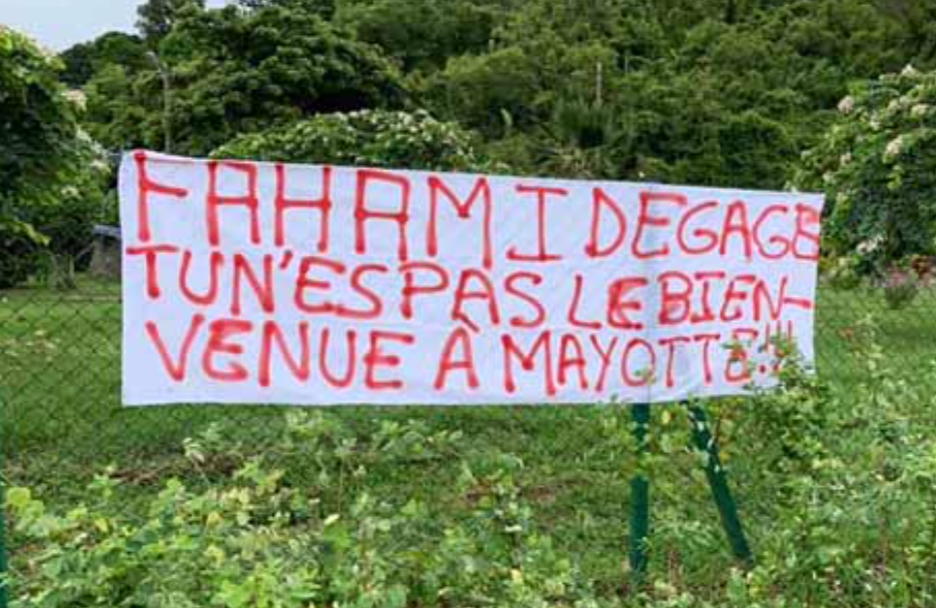 FAHAMI DEGAGE
TU N'ES PAS LE BIEN-
VENUE À MAYOTTE!!!